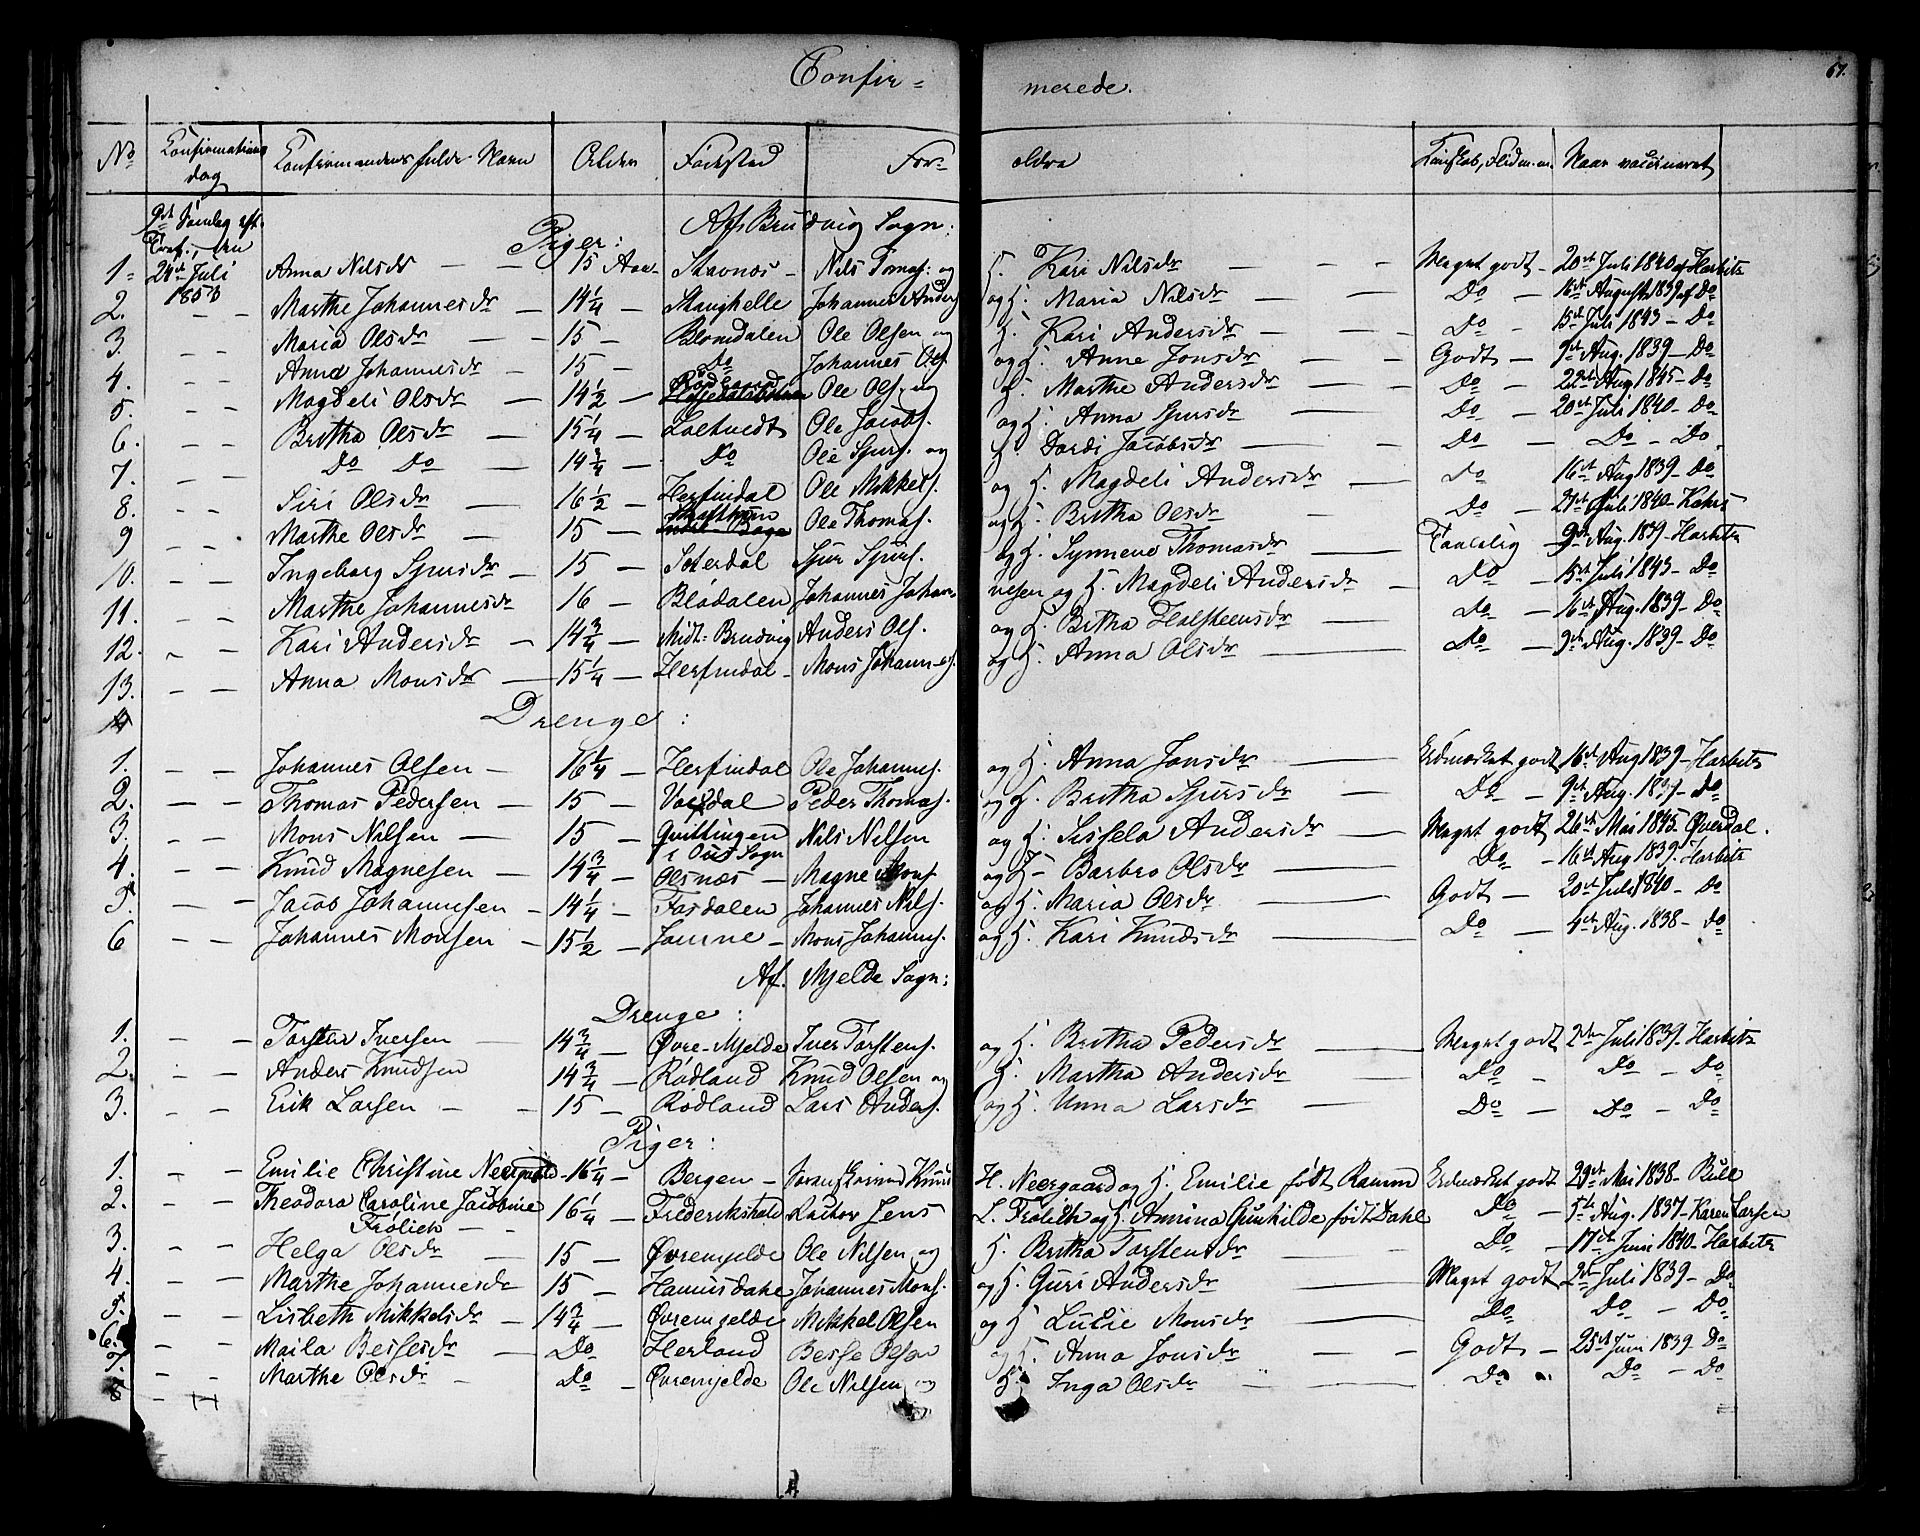 Confir= merede. 67.
No Confirmations dag Confirmandens fulde Navn Alder Fødested For- ældre Kundskab, Flid m. m. Naar vaccineret
9de Søndag eft. Trinit., den 24de Juli 1853
Af Brudvig Sogn:
Piger:
1. Anna Nilsdr — 15 Aar — Stavnæs — Nils Tomas: og H. Kari Nilsdr — Meget godt — 20de Juli 1840 af Harbitz
2. Marthe Johannesdr 14¼ — Stanghelle Johannes Anders. og H. Maria Nilsdr — Do — 16de August 1839 af Do
3. Maria Olsdr — 15 — Blomdalen Ole Olsen og H. Kari Andersdr — Do — 15de Juli 1843 — Do
4. Anna Johannesdr — 15 — Do Johannes Ols. og H. Anne Jonsdr — Godt — 9de Aug. 1839 — Do
5. Magdeli Olsdr — 14½ — Ole Ols. og H. Marthe Andersdr — Do — 22de Aug 1845 — Do
6. Britha Olsdr — 15¼ — Loltvedt Ole Jacobs. og H. Anna Sjursdr — Do — 20de Juli 1840 — Do
7. Do Do — 14¾ — Do Ole Sjurs. og H. Dordi Jacobsdr — Do — Do — Do
8. Siri Olsdr — 16½ — Herfindal Ole Mikkels. og H. Magdeli Andersdr — Do — 16de Aug 1839 — Do
9. Marthe Olsdr — 15 — Ole Thomas. og H. Britha Olsdr — Do — 27de Juli 1840 —
10. Ingeborg Sjursdr — 15 — Soterdal Sjur Sjurs. og H. Synneve Thomasdr — Taalelig — 9de Aug. 1839 — Harbitz
11. Marthe Johannesdr 16 — Blådalen Johannes Johannesen og H. Magdeli Andersdr — Do — 15de Juli 1843 — Do
12. Kari Andersdr — 14¾ — Midt-Brudvig Anders Ols. og H. Britha Halsteensdr — Do — 16de Aug. 1839 — Do
13. Anna Monsdr — 15¼ — Herfindal — Mons Johannes. og H. Anna Olsdr — Do — 9de Aug. 1839 — Do
Drenge:
1. Johannes Olsen — 16¼ — Herfindal Ole Johannes. og H. Anna Jonsdr — Udmærket godt 16de Aug 1839 — Harbitz
2. Thomas Pedersen — 15 — Vaxdal Peder Thomas. og H. Britha Sjursdr — Do — 9de Aug. 1839 — Do
3. Mons Nilsen — 15 — Qvittingen i Ous Sogn Nils Nilsen og H. Sissela Andersdr — Meget godt 26de Mai 1845. Øverdal.
4. Knud Magnesen — 14¾ — Olsnæs — Magne Mons. og H. Barbro Olsdr — Do — 16de Aug 1839. Harbitz
5. Jacob Johannesen — 14¼ — Fosdalen Johannes Nils. og H. Maria Olsdr — Godt — 20de Juli 1840 — Do
6 Johannes Monsen — 15½ — Mons Johannes. og H. Kari Knudsdr — Do — Aug. 1838 — Do
Af Mjelde Sogn:
Drenge:
1. Torsten Iversen — 14¾ — Øvre-Mjelde Iver Torstens. og H. Britha Pedersdr — Meget godt 2den Juli 1839. Harbitz
2. Anders Knudsen 14¾ — Rødland Knud Olsen og H. Martha Andersdr — Do — Do — Do
3. Erik Larsen — 15 — Rødland Lars Anders. og H. Unna Larsdr — Do — Do — Do
Piger:
1. Emilie Christine Neergaard — 16¼ — Bergen — H. Neergaard og H. Emilie født Ramm Udmærket godt 29de Mai 1838 — Bull
2. Theodora Caroline Jacobine Frölich — 16¼ — Frederikshald Jens L. Frölich og H. Annina Gunhilde født Dahl Do — 5te Aug. 1837 — Karen Larsen
3. Helga Olsdr — 15 — Øvremjelde Ole Nilsen og H. Britha Torstensdr — Do — 17de Juni 1840 — Harbitz
4. Marthe Johannesdr — 15 — Hamrsdale Johannes Mons. og H. Guri Andersdr — Meget godt 2den Juli 1839 — Do
5. Lisbeth Mikkelsdr — 14¾ — Øvremjelde Mikkel Olsen og H. Lucie Monsdr — Do — Do — Do
6. Maila Bessesdr — Do — Herland Besse Olsen og H. Anna Jonsdr — Godt — 25de Juni 1839 Do
7. Marthe Olsdr — Do — Øvremjelde Ole Nilsen og H. Inga Olsdr — Do — Do — Do
8